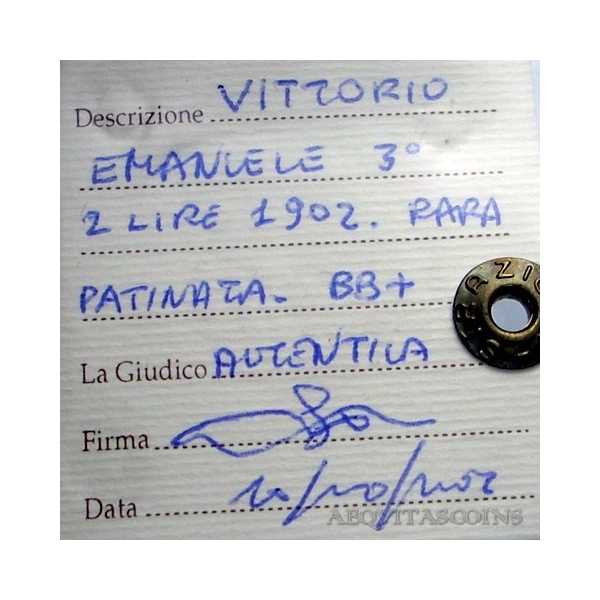 Descrizione VITTORIO
EMANUELE 3°
2 LIRE 1902. RARA
PATINATA. BB+
La Giudico AUTENTICA
Firma
Data
AEQVITASCOINS